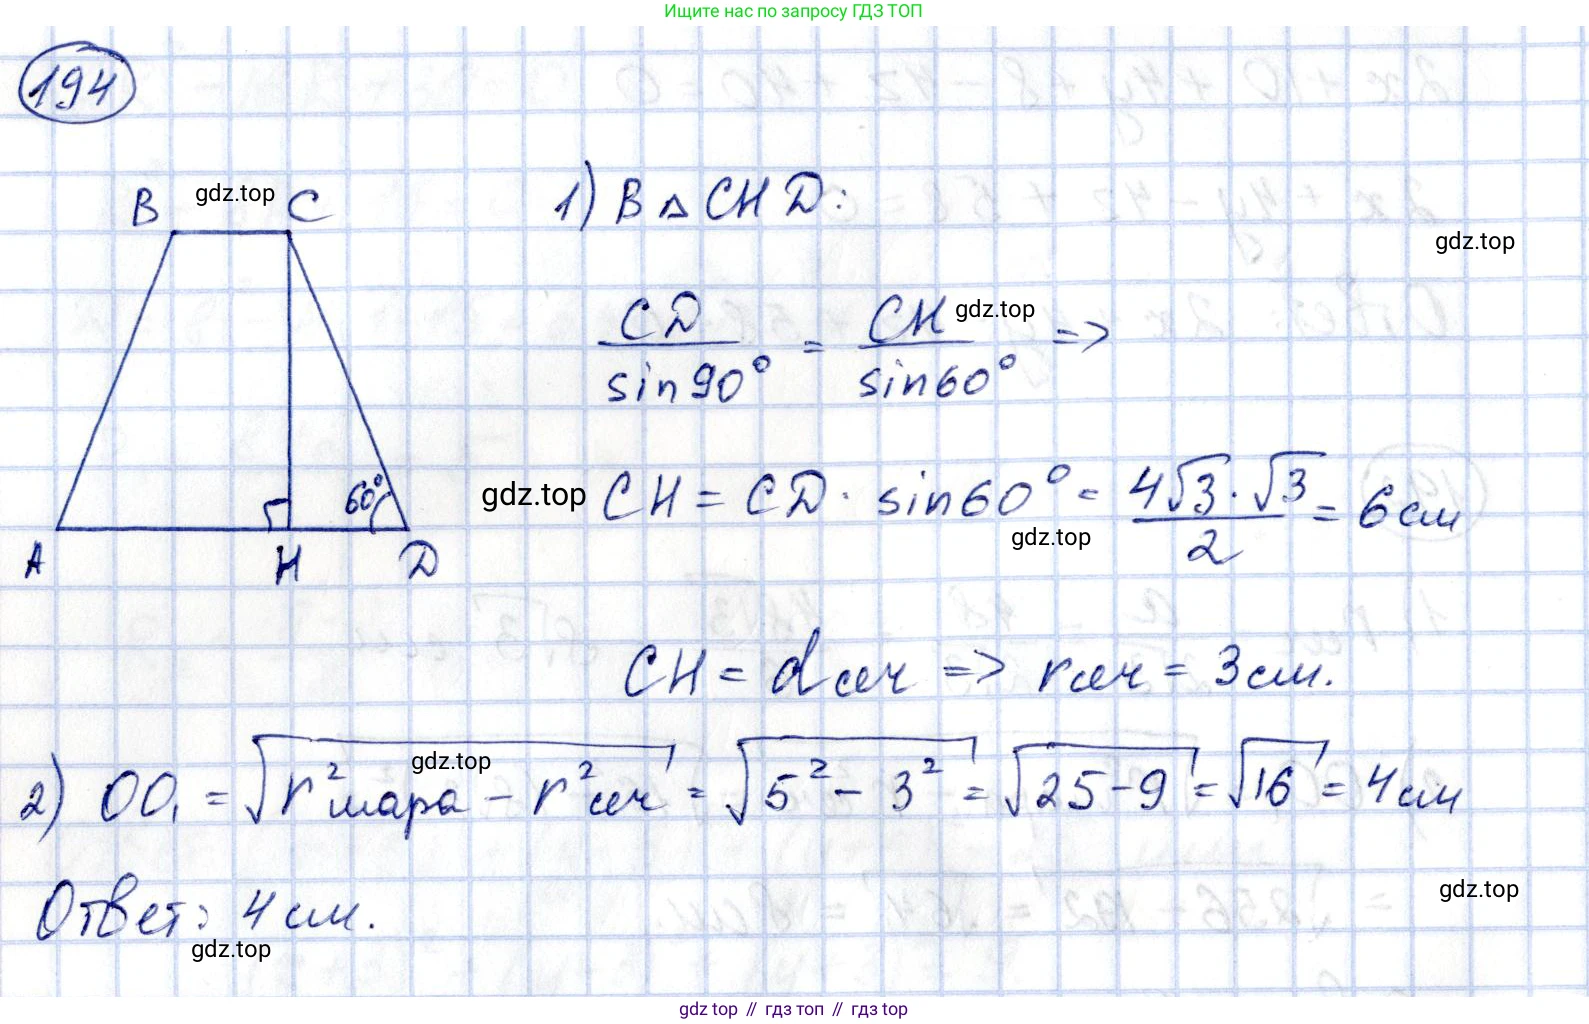 Ищите нас по запросу ГДЗ ТОП
194
B gdz.top C
1) В △ CHD:
gdz.top
CD/sin90° = CH/sin60° =>
gdz.top
60°
A H D
gdz.top
CH = CD · sin60° = 4√3·√3/2 = 6см
gdz.top
CH = dсеч => rсеч = 3см.
2) OO₁ = √(r²шара - r²сеч) = √(5² - 3²) = √(25-9) = √16 = 4см
gdz.top
Ответ: 4см.
gdz.top
gdz.top
gdz top // гдз топ // гдз top